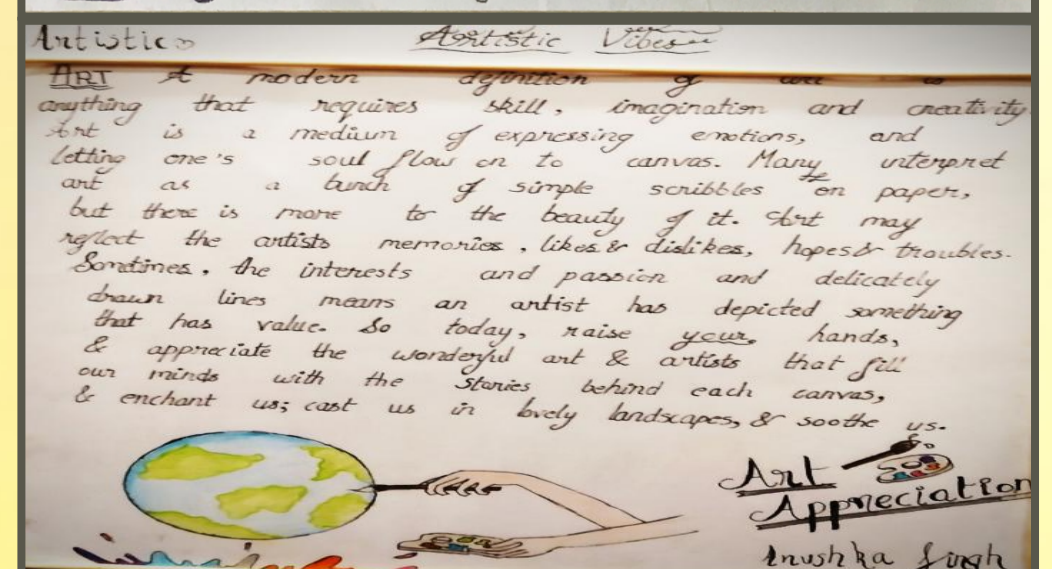 Artistic
Artistic Vibes
ART A modern definition of art is
anything that requires skill, imagination and creativity.
Art is a medium of expressing emotions, and
letting one's soul flow on to canvas. Many interpret
art as a bunch of simple scribbles on paper,
but there is more to the beauty of it. Art may
reflect the artists memories, likes & dislikes, hopes & troubles.
Somtimes, the interests and passion and delicately
drawn lines means an artist has depicted something
that has value. So today, raise your hands,
& appreciate the wonderful art & artists that fill
our minds with the stories behind each canvas,
& enchant us; cast us in lovely landscapes, & soothe us.
Art
Appreciation
Anushka Singh